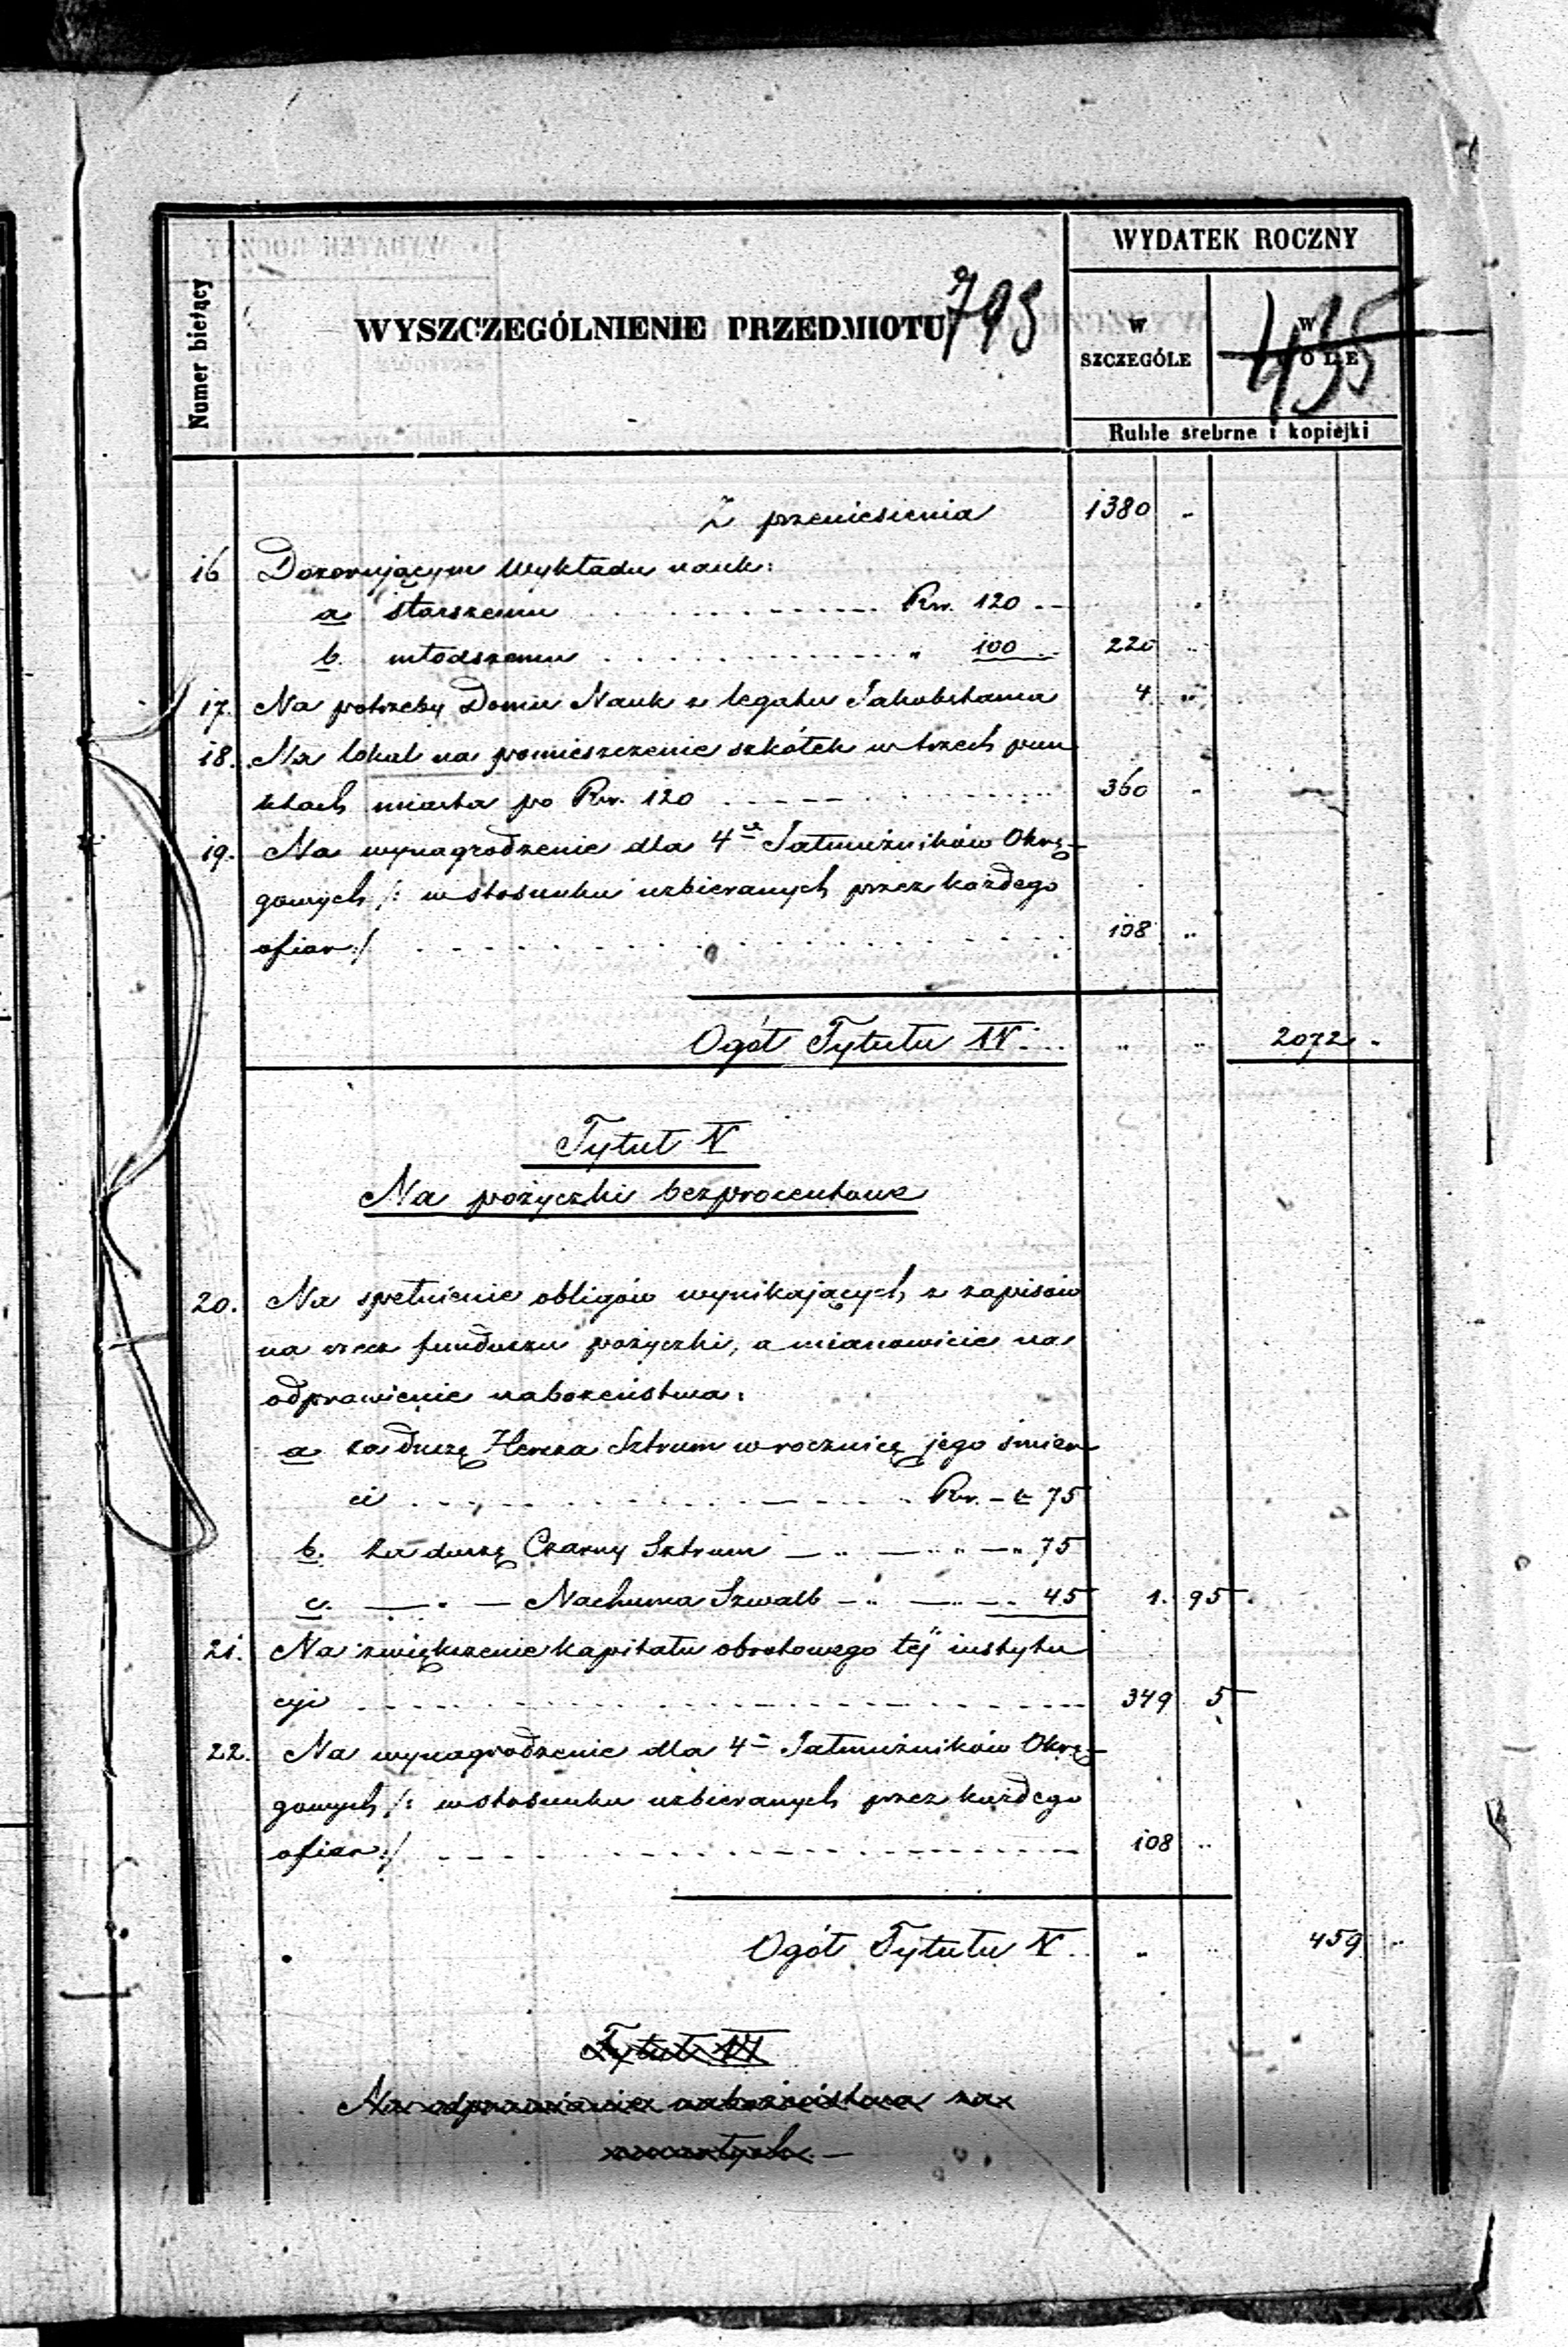 WYDATEK ROCZNY
Numer bieżący
WYSZCZEGÓLNIENIE PRZEDMIOTU
795
W
SZCZEGÓLE
W
OLE
435
Ruble srebrne i kopiejki
Z przeniesienia 1380 „
16 Dozorującym wykładu nauk:
a starszemu Rsr. 120 „
b. młodszemu „ 100 „ 220 „
17. Na potrzeby Domu Nauk z legatu Jakubshama 4 „
18. Na lokal na pomieszczenie szkółek w trzech pun
ktach miasta po Rsr. 120 360 „
19. Na wynagrodzenie dla 4ch Jałmużników Okrę-
gowych /: w stosunku uzbieranych przez każdego
ofiar :/ 108 „
Ogół Tytułu IV „ „ 2072 „
Tytuł V
Na pożyczki bezprocentowe
20. Na spełnienie obligów wynikających z zapisów
na rzecz funduszu pożyczki, a mianowicie na
odprawienie nabożeństwa:
a za duszę Hersza Sztrum w rocznicę jego śmier
ci Rsr. - k 75
b. za duszę Czarny Sztrum — „ — „ — „ 75
c. — „ — Nachuma Szwalb — „ — „ — „ 45 1. 95
21. Na zwiększenie kapitału obrotowego tej instytu
cyi 349 5
22. Na wynagrodzenie dla 4ch Jałmużników Okrę-
gowych /: w stosunku uzbieranych przez każdego
ofiar :/ 108 „
Ogół Tytułu V. „ „ 459 „
Tytuł VI
Na odprawianie nabożeństwa za
zmarłych. —